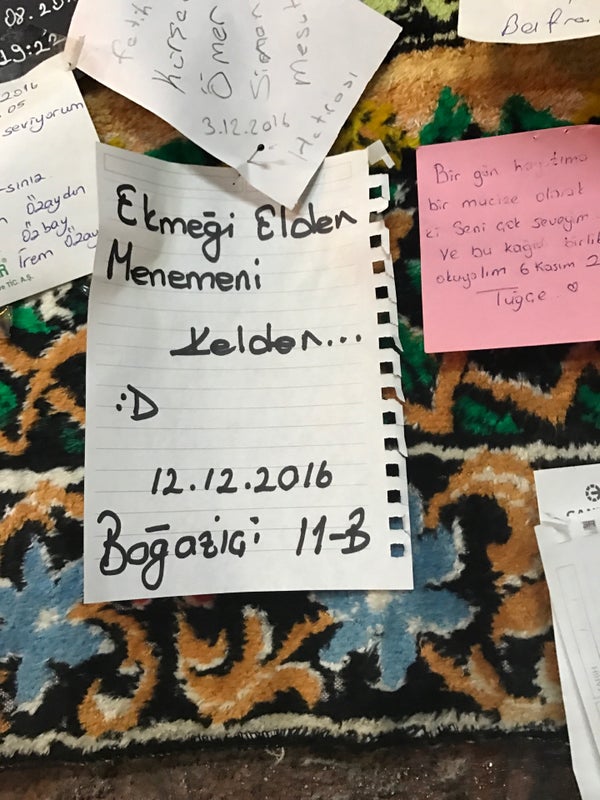 08.20
19:22
2016
.05
seviyorum
sınız
Özaydın
Özbay
İrem Özay
TİC A.Ş.
Fatih
Ömer
Mesut
Hatırası
3.12.2016
Bafra
Ekmeği Elden
Menemeni
Kelden...
:D
12.12.2016
Boğaziçi 11-B
Bir gün
bir mucize olarak
ki Seni çok seveyim
ve bu kağıdı birlik
okuyalım 6 Kasım 2
Tuğçe